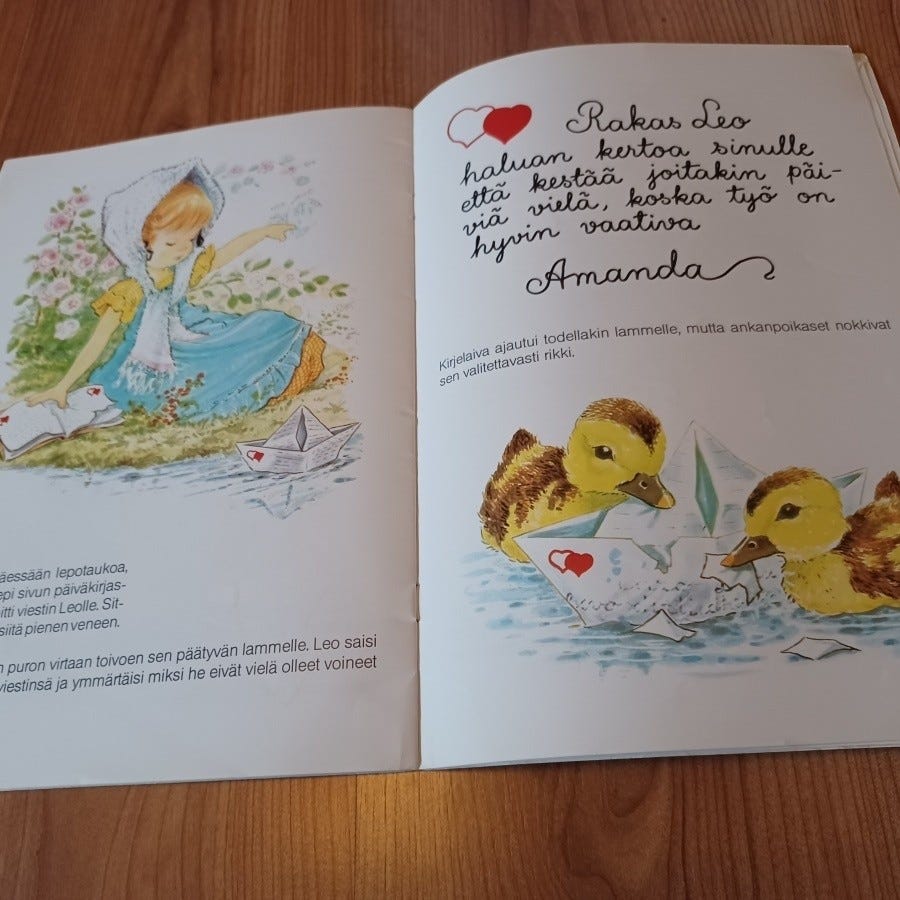 äessään lepotaukoa,
epi sivun päiväkirjas-
itti viestin Leolle. Sit-
siitä pienen veneen.
n puron virtaan toivoen sen päätyvän lammelle. Leo saisi
viestinsä ja ymmärtäisi miksi he eivät vielä olleet voineet
Rakas Leo
haluan kertoa sinulle
että kestää joitakin päi-
viä vielä, koska työ on
hyvin vaativa
Amanda
Kirjelaiva ajautui todellakin lammelle, mutta ankanpoikaset nokkivat
sen valitettavasti rikki.